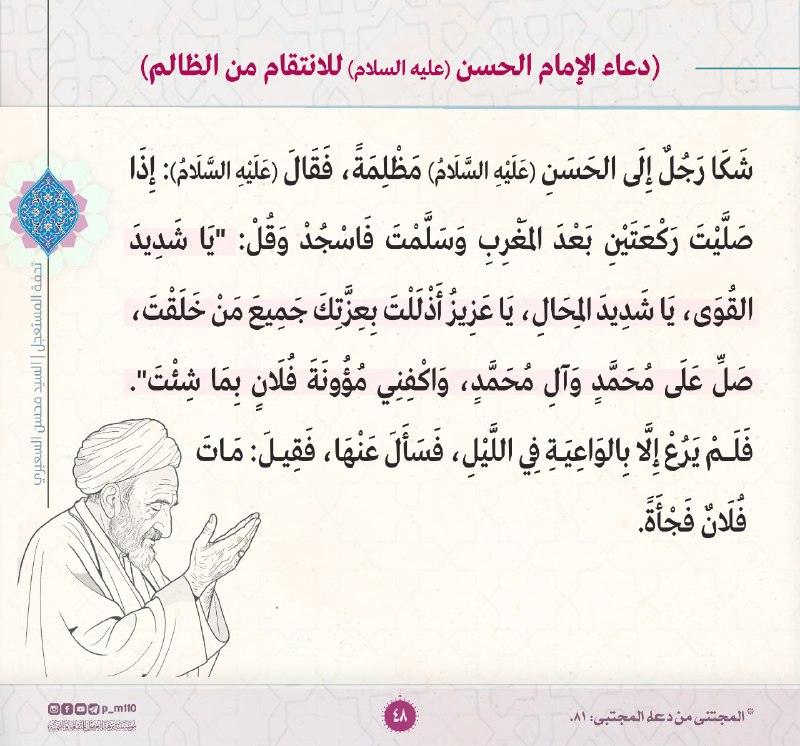 (دعاء الإمام الحسن (عليه السلام) للانتقام من الظالم)
شَكَا رَجُلٌ إِلَى الحَسَنِ (عَلَيْهِ السَّلَامُ) مَظْلِمَةً، فَقَالَ (عَلَيْهِ السَّلَامُ): إِذَا
صَلَّيْتَ رَكْعَتَيْنِ بَعْدَ المَغْرِبِ وَسَلَّمْتَ فَاسْجُدْ وَقُلْ: "يَا شَدِيدَ
القُوَى، يَا شَدِيدَ المِحَالِ، يَا عَزِيزُ أَذْلَلْتَ بِعِزَّتِكَ جَمِيعَ مَنْ خَلَقْتَ،
صَلِّ عَلَى مُحَمَّدٍ وَآلِ مُحَمَّدٍ، وَاكْفِنِي مُؤُونَةَ فُلَانٍ بِمَا شِئْتَ".
فَلَـمْ يَرُعْ إِلَّا بِالوَاعِيَـةِ فِي اللَّيْلِ، فَسَأَلَ عَنْهَا، فَقِيـلَ: مَـاتَ
فُلَانٌ فَجْأَةً.
تحفة المستعجل | السيد محسن السعبري
* المجتنى من دعاء المجتبى: ٨١.
٤٨
p_m110